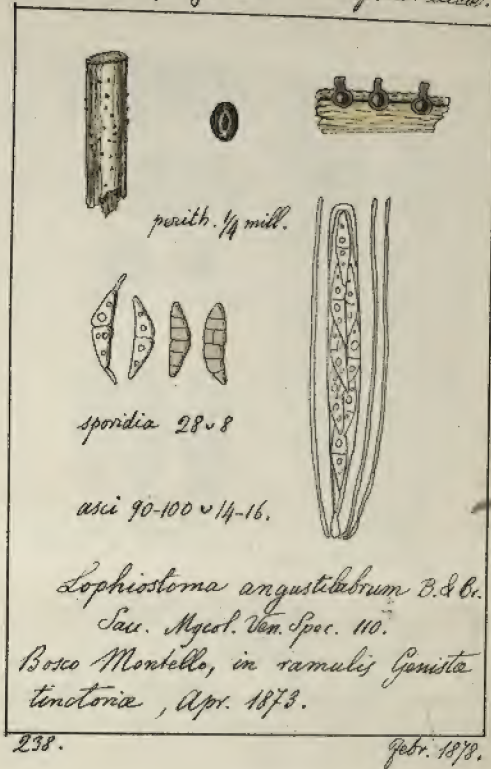 perith. 1/4 mill.
sporidia 28 v 8
asci 90-100 v 14-16.
Lophiostoma angustilabrum B. & Br.
Sacc. Mycol. Ven. Spec. 110.
Bosco Montello, in ramulis Genistæ
tinctoriæ, Apr. 1873.
238.
Febr. 1878.